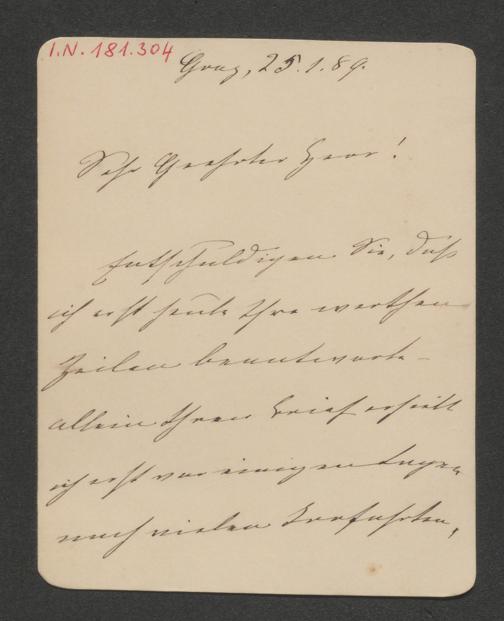 I.N. 181.304
Graz, 25.1.89.
Sehr Geehrter Herr!
Entschuldigen Sie, daß
ich erst heute Ihre werthen
Zeilen beantworte –
allein Ihren Brief erhielt
ich erst vor einigen Tagen
nach vielen Irrfahrten,